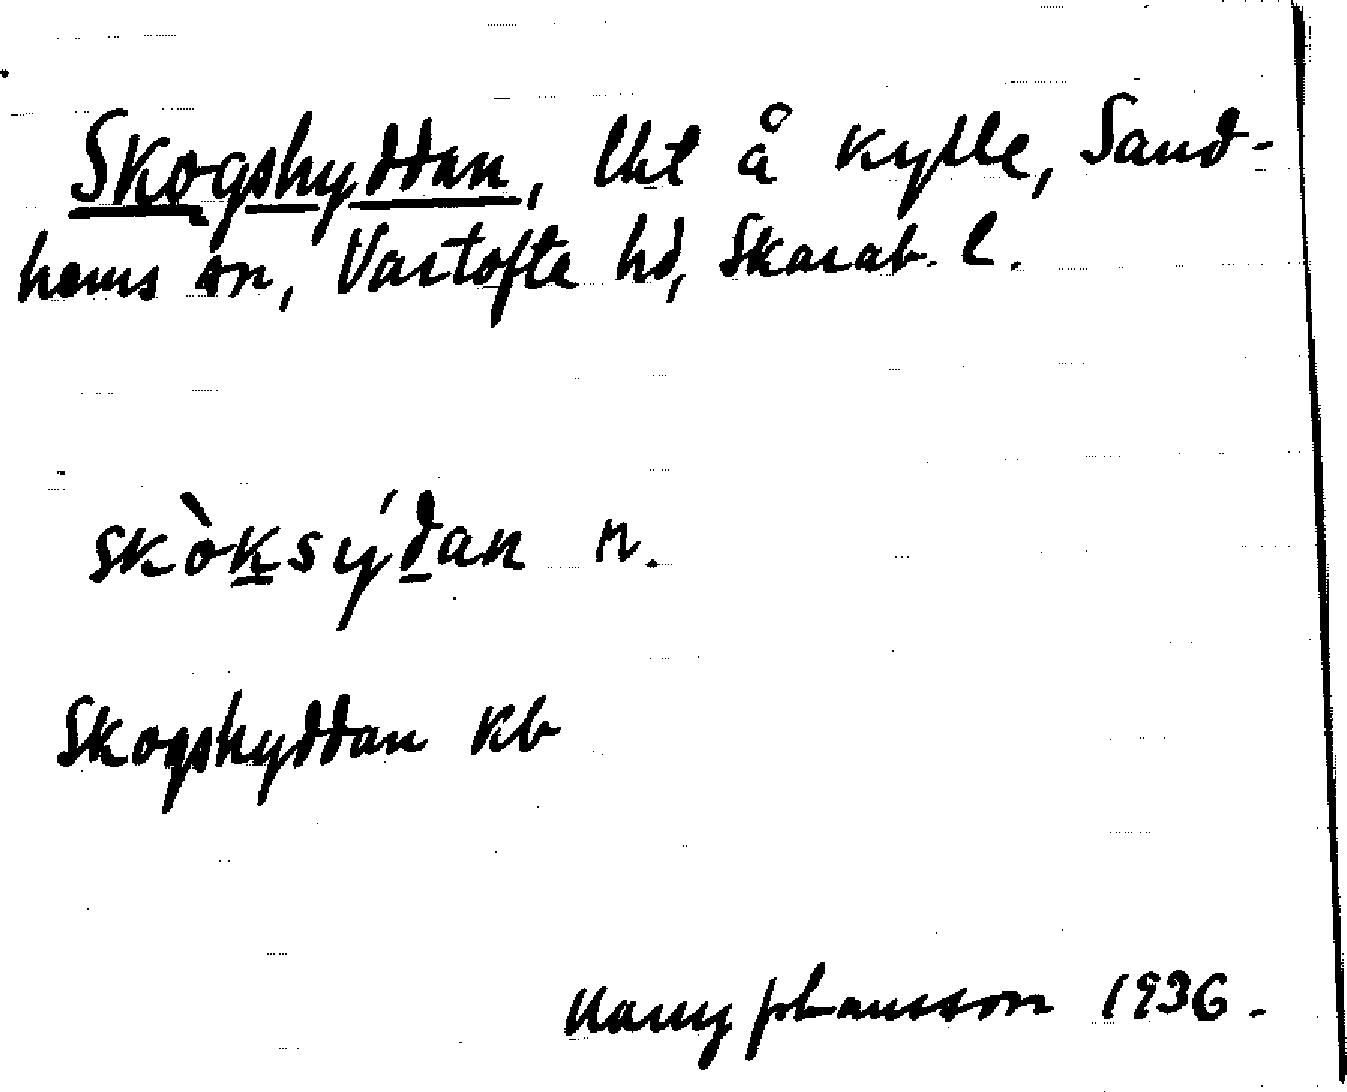 Skogshyddan, lht å Kylle, Sand-
hems sn, Vartofta hd, Skarab. l.
skòksýdan n.
Skogshyddan Kb
Harry Johansson 1936.